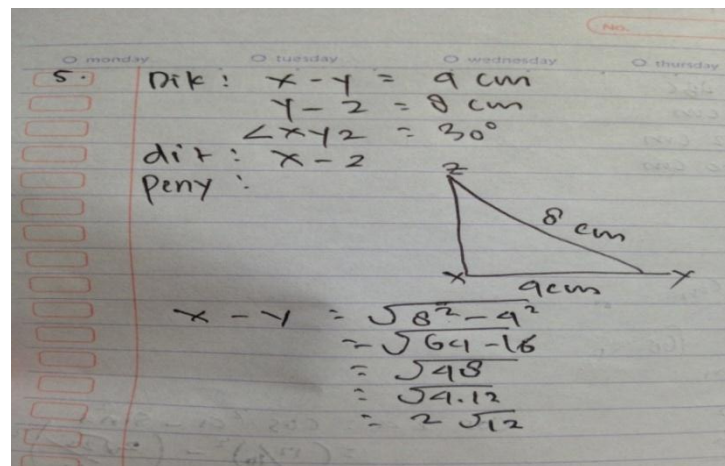 NO.
monday tuesday wednesday thursday
5. Dik : x - y = 4 cm
y - z = 8 cm
∠xyz = 30°
dit : x - z
peny :
z
8 cm
x y
4cm
x - y = √8² - 4²
= √64 - 16
= √48
= √4.12
= 2 √12